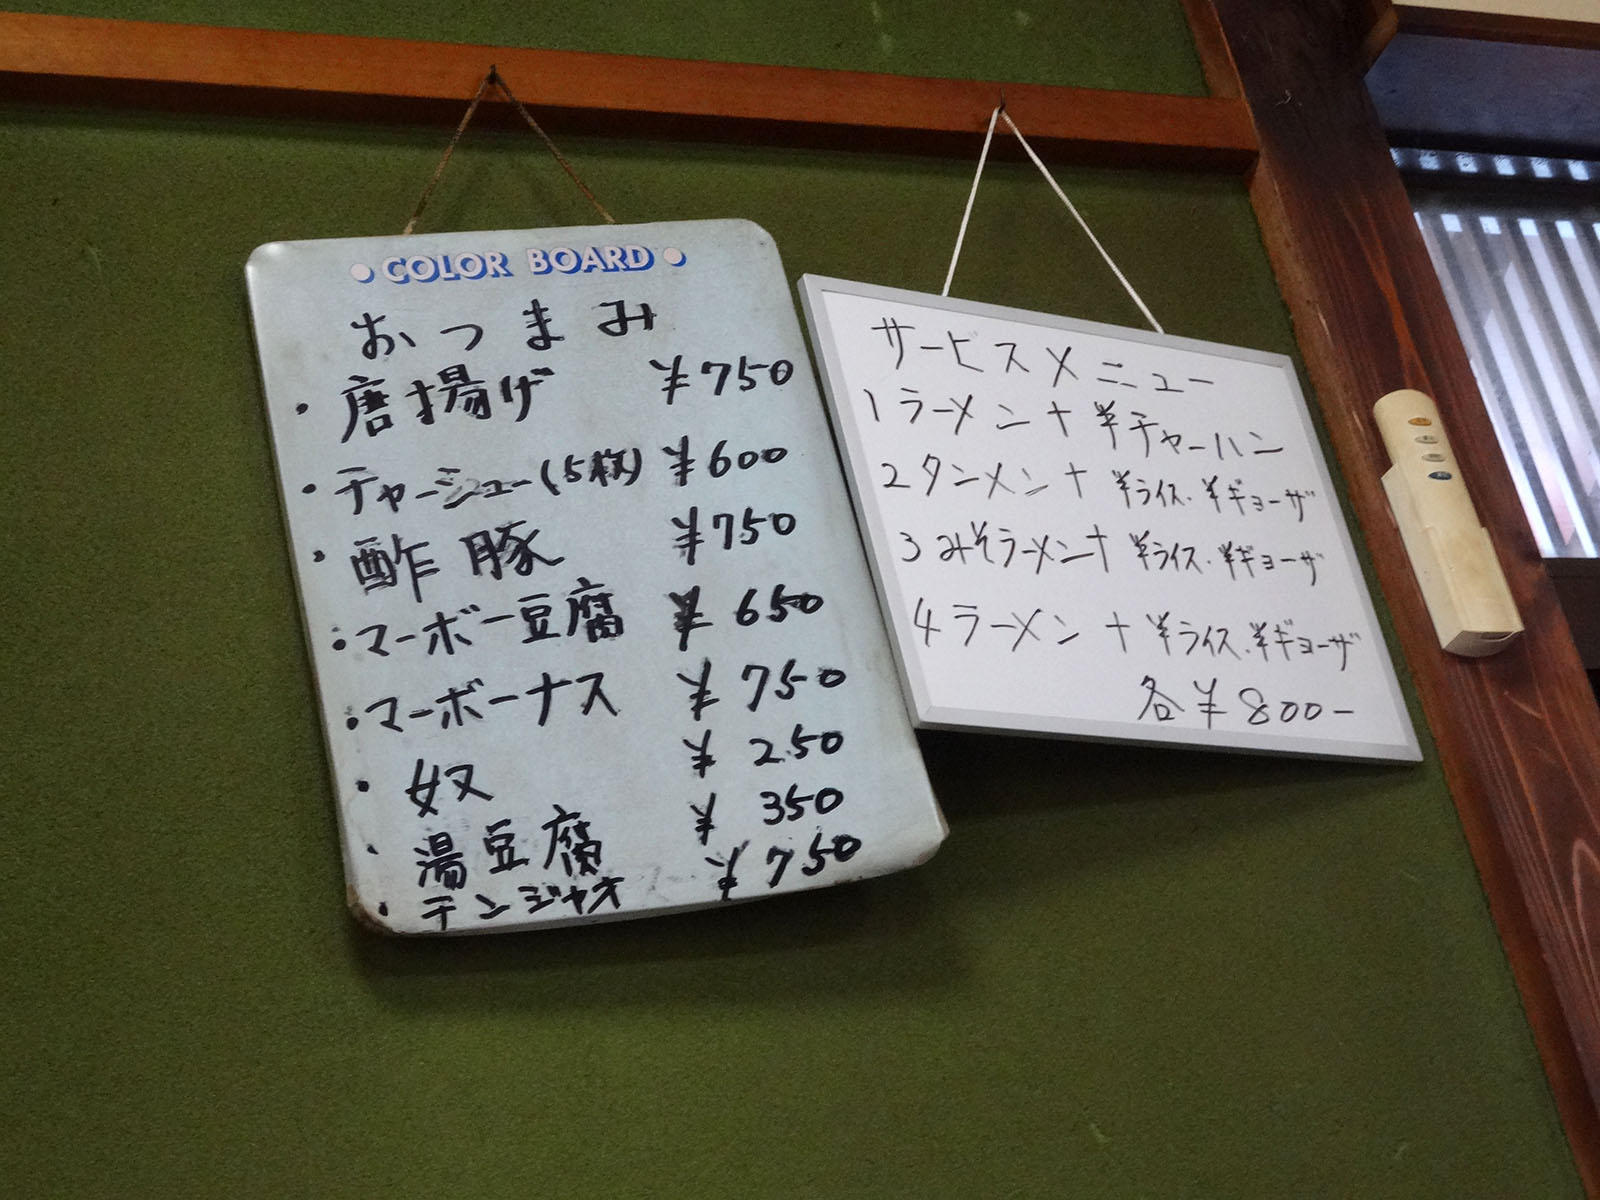 • COLOR BOARD •
おつまみ
・唐揚げ ¥750
・チャーシュー(5枚) ¥600
・酢豚 ¥750
・マーボー豆腐 ¥650
・マーボーナス ¥750
・奴 ¥250
・湯豆腐 ¥350
・チンジャオ ¥750
サービスメニュー
1 ラーメン+半チャーハン
2 タンメン+半ライス・半ギョーザ
3 みそラーメン+半ライス・半ギョーザ
4 ラーメン+半ライス・半ギョーザ
各¥800-